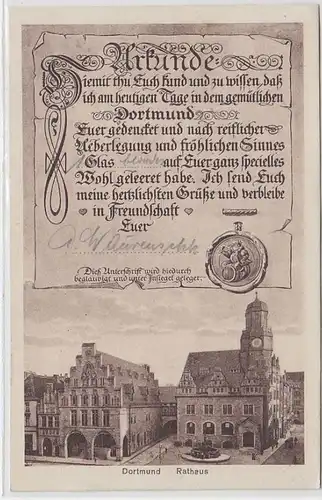 Urkunde
Hiemit thu Euch kund und zu wissen, daß
ich am heutigen Tage in dem gemütlichen
Dortmund
Euer gedencket und nach reiflicher
Ueberlegung und fröhlichen Sinnes
Glas auf Euer ganz specielles
Wohl geleeret habe. Ich send Euch
meine hertzlichsten Grüße und verbleibe
in Freundschaft
Euer
Dieß Unterschrift wird hiedurch
beglaubigt und unter Insiegel geleget.
Dortmund Rathaus